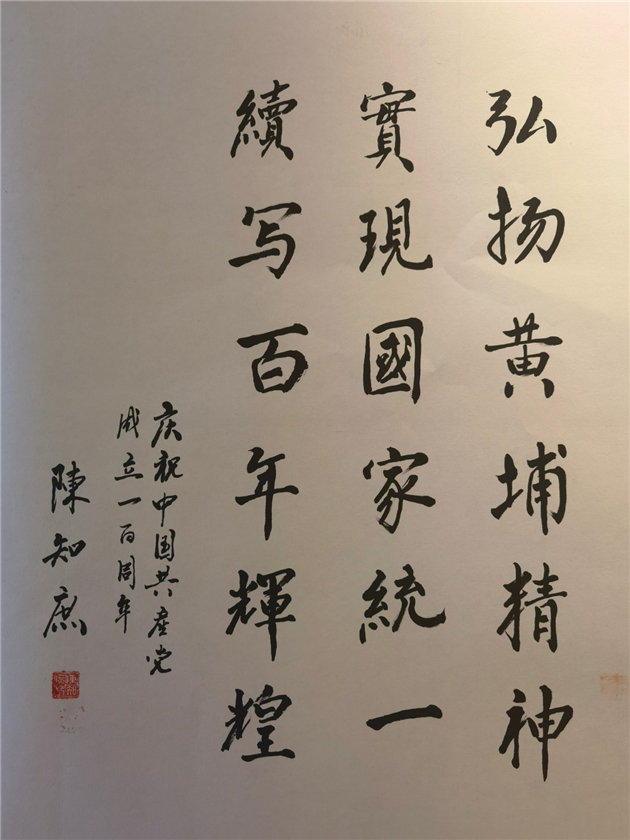 弘扬黄埔精神
實現國家統一
續写百年輝煌
庆祝中国共産党
成立一百周年
陳知庶